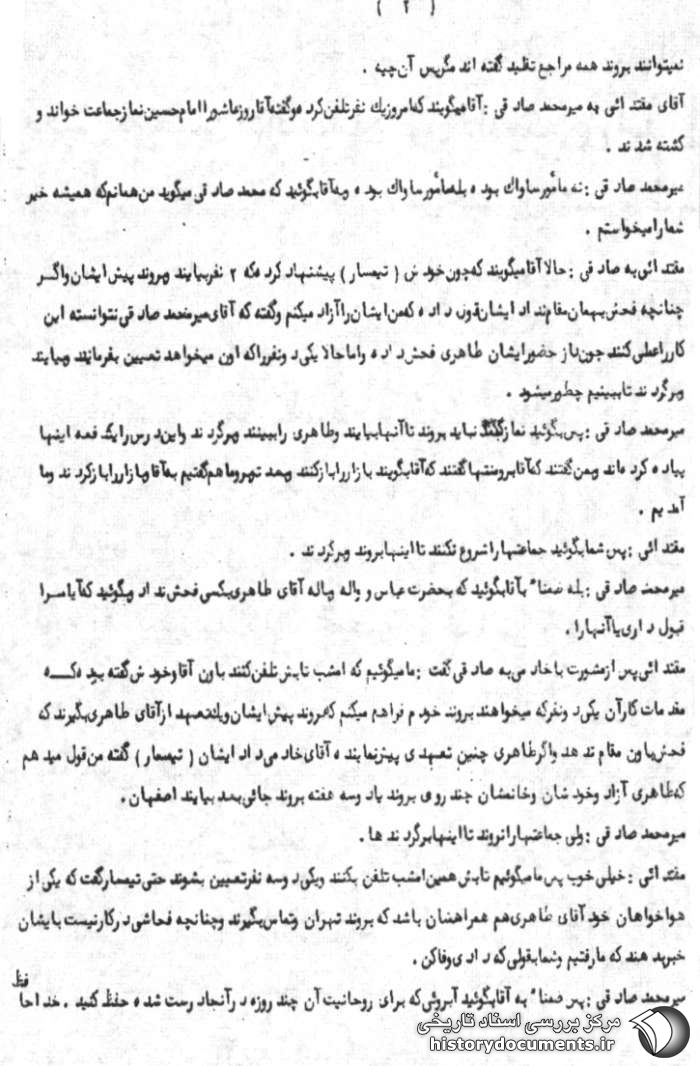 ( ۲ )
نمیتوانند بروند همه مراجع تقلید گفته اند مگرپس آن چیه .
آقای مقتد ائی به میرمحمد صاد قی :آقامیگویند که امروز یك نفرتلفن کرد ه وگفته آقا روزعاشورا امام حسین نماز جماعت خواند و
کشته شد ند .
میرمحمد صاد قی :نه مأمورساواك بود ه بله مأمورساواك بود ه وبه آقابگوئید که محمد صاد قی میگوید من همانم که همیشه خبر
شما را میخواستم .
مقتد ائی به صاد قی :حالا آقامیگویند که چون خود ش ( تیمسار ) پیشنهاد کرد ه که ۲ نفربیایند وبروند پیش ایشان واگر
چنانچه فحش بهمان مقام ند اد ایشان قول د اد ه که من ایشان را آزاد میکنم وگفته که آقای میرمحمد صاد قی نتوانسته این
کار راعملی کنند چون باز حضور ایشان طاهری فحش د اد ه واما حالا یکی د ونفر را که اون میخواهد تعیین بفرمایند وبیایند
وبرگرد ند تا ببینیم چطور میشود .
میرمحمد صاد قی :پس بگوئید نماز نباید بروند تا آنها بیایند وطاهری راببینند وبرگرد ند واین د رس رایك د فعه اینها
پیاد ه کرد ه اند وبمن گفتند که آقا بروتنها گفتند که آقا بگویند بازار را باز کنند وبعد توبرو ما هم گفتیم به آقا وبازار را باز کرد ند وما
آمد یم .
مقتد ائی :پس شما بگوئید جماعتها را شروع نکنند تا اینها بروند وبرگرد ند .
میرمحمد صاد قی :بله ضمناً به آقا بگوئید که بحضرت عباس و واله وباله آقای طاهری بکسی فحش ند اد وبگوئید که آیا مسرا
قبول د اری یا آنها را .
مقتد ائی پس از مشورت با خاد می به صاد قی گفت :ما میگوئیم که امشب تابش تلفن کنند باون آقا وخود ش گفته بود ه کـــه
مقد مات کار آن یکی د ونفر که میخواهند بروند خود م فراهم میکنم که بروند پیش ایشان ویك تعهد از آقای طاهری بگیرند که
فحش باون مقام ند هد واگر طاهری چنین تعهد ی بنماید ه آقای خاد می د اد ایشان ( تیمسار ) گفته من قول مید هم
که طاهری آزاد وخود شان وخانمشان چند روز ی بروند یاد وسه هفته بروند جائی بعد بیایند اصفهان .
میرمحمد صاد قی :ولی جماعتها را نروند تا اینها برگرد ند ها .
مقتد ائی :خیلی خوب پس ما میگوئیم تابش همین امشب تلفن بکنند ویکی د وسه نفر تعیین بشوند حتی تیمسار گفت که یکی از
هواخواهان خود آقای طاهری هم همراهشان باشد که بروند تهران وتماس بگیرند وچنانچه فحاشی د ر کار نیست بایشان
خبر بد هند که ما رفتیم وشما بقولی که د اد ی وفا کن .
میرمحمد صاد قی :پس ضمناً به آقا بگوئید آبروئی که برای روحانیت آن چند روزه د ر آنجا د رست شد ه حفظ کنید . خد احا
فظ
مرکز بررسی اسناد تاریخی
historydocuments.ir